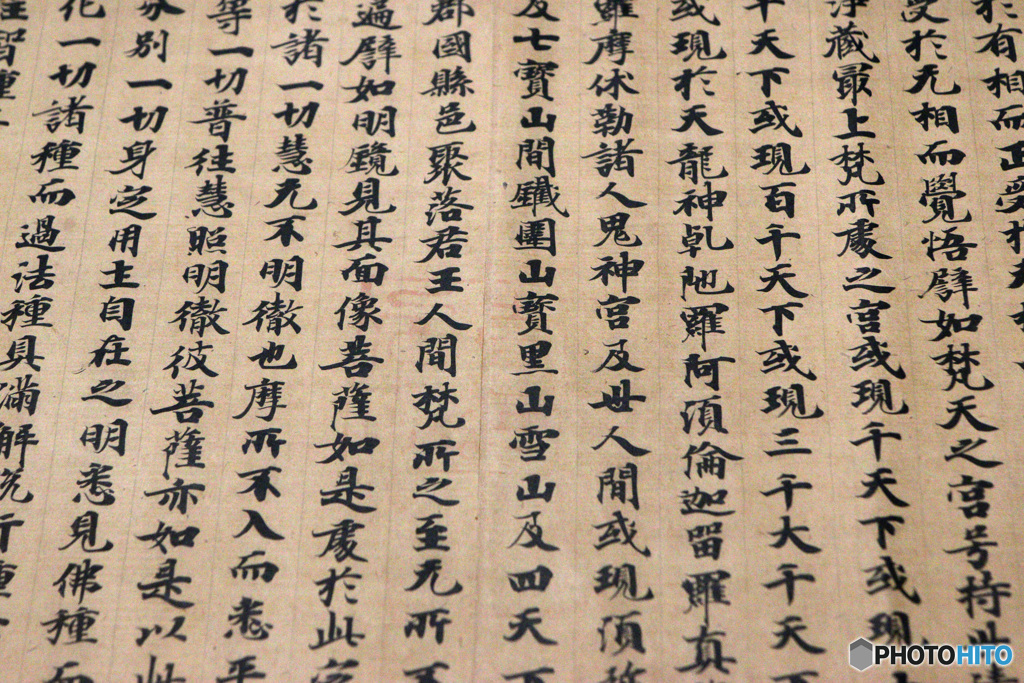 於有相而正受於无
受於无相而覺悟譬如梵天之宮号持此
淨藏最上梵所處之宮或現千天下或現
千天下或現百千天下或現三千大千天下
或現於天龍神乹阤羅阿須倫迦留羅真
羅摩休勒諸人鬼神宮及世人間或現須
及七寶山間鐵圍山寶黑山雪山及四天下
郡國縣邑聚落君王人間梵所之至无所不
遍譬如明鏡見其面像菩薩如是處於此定
於諸一切慧无不明徹也摩所不入而悉平
等一切普往慧照明徹彼菩薩亦如是以此
別一切身定用土自在之明悉見佛種而
化一切諸種而過法種具滿解說行種
習種
PHOTOHITO